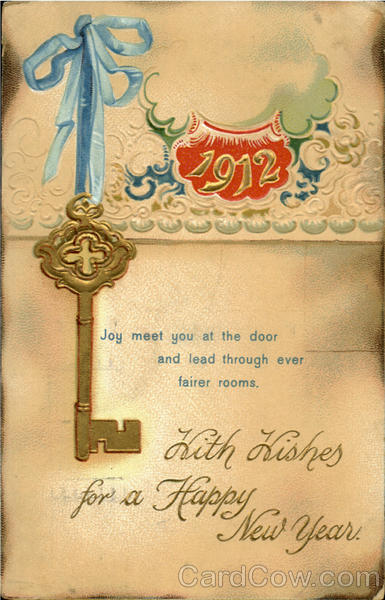 1912
Joy meet you at the door
and lead through ever
fairer rooms.
With Wishes
for a Happy
New Year.
CardCow.com